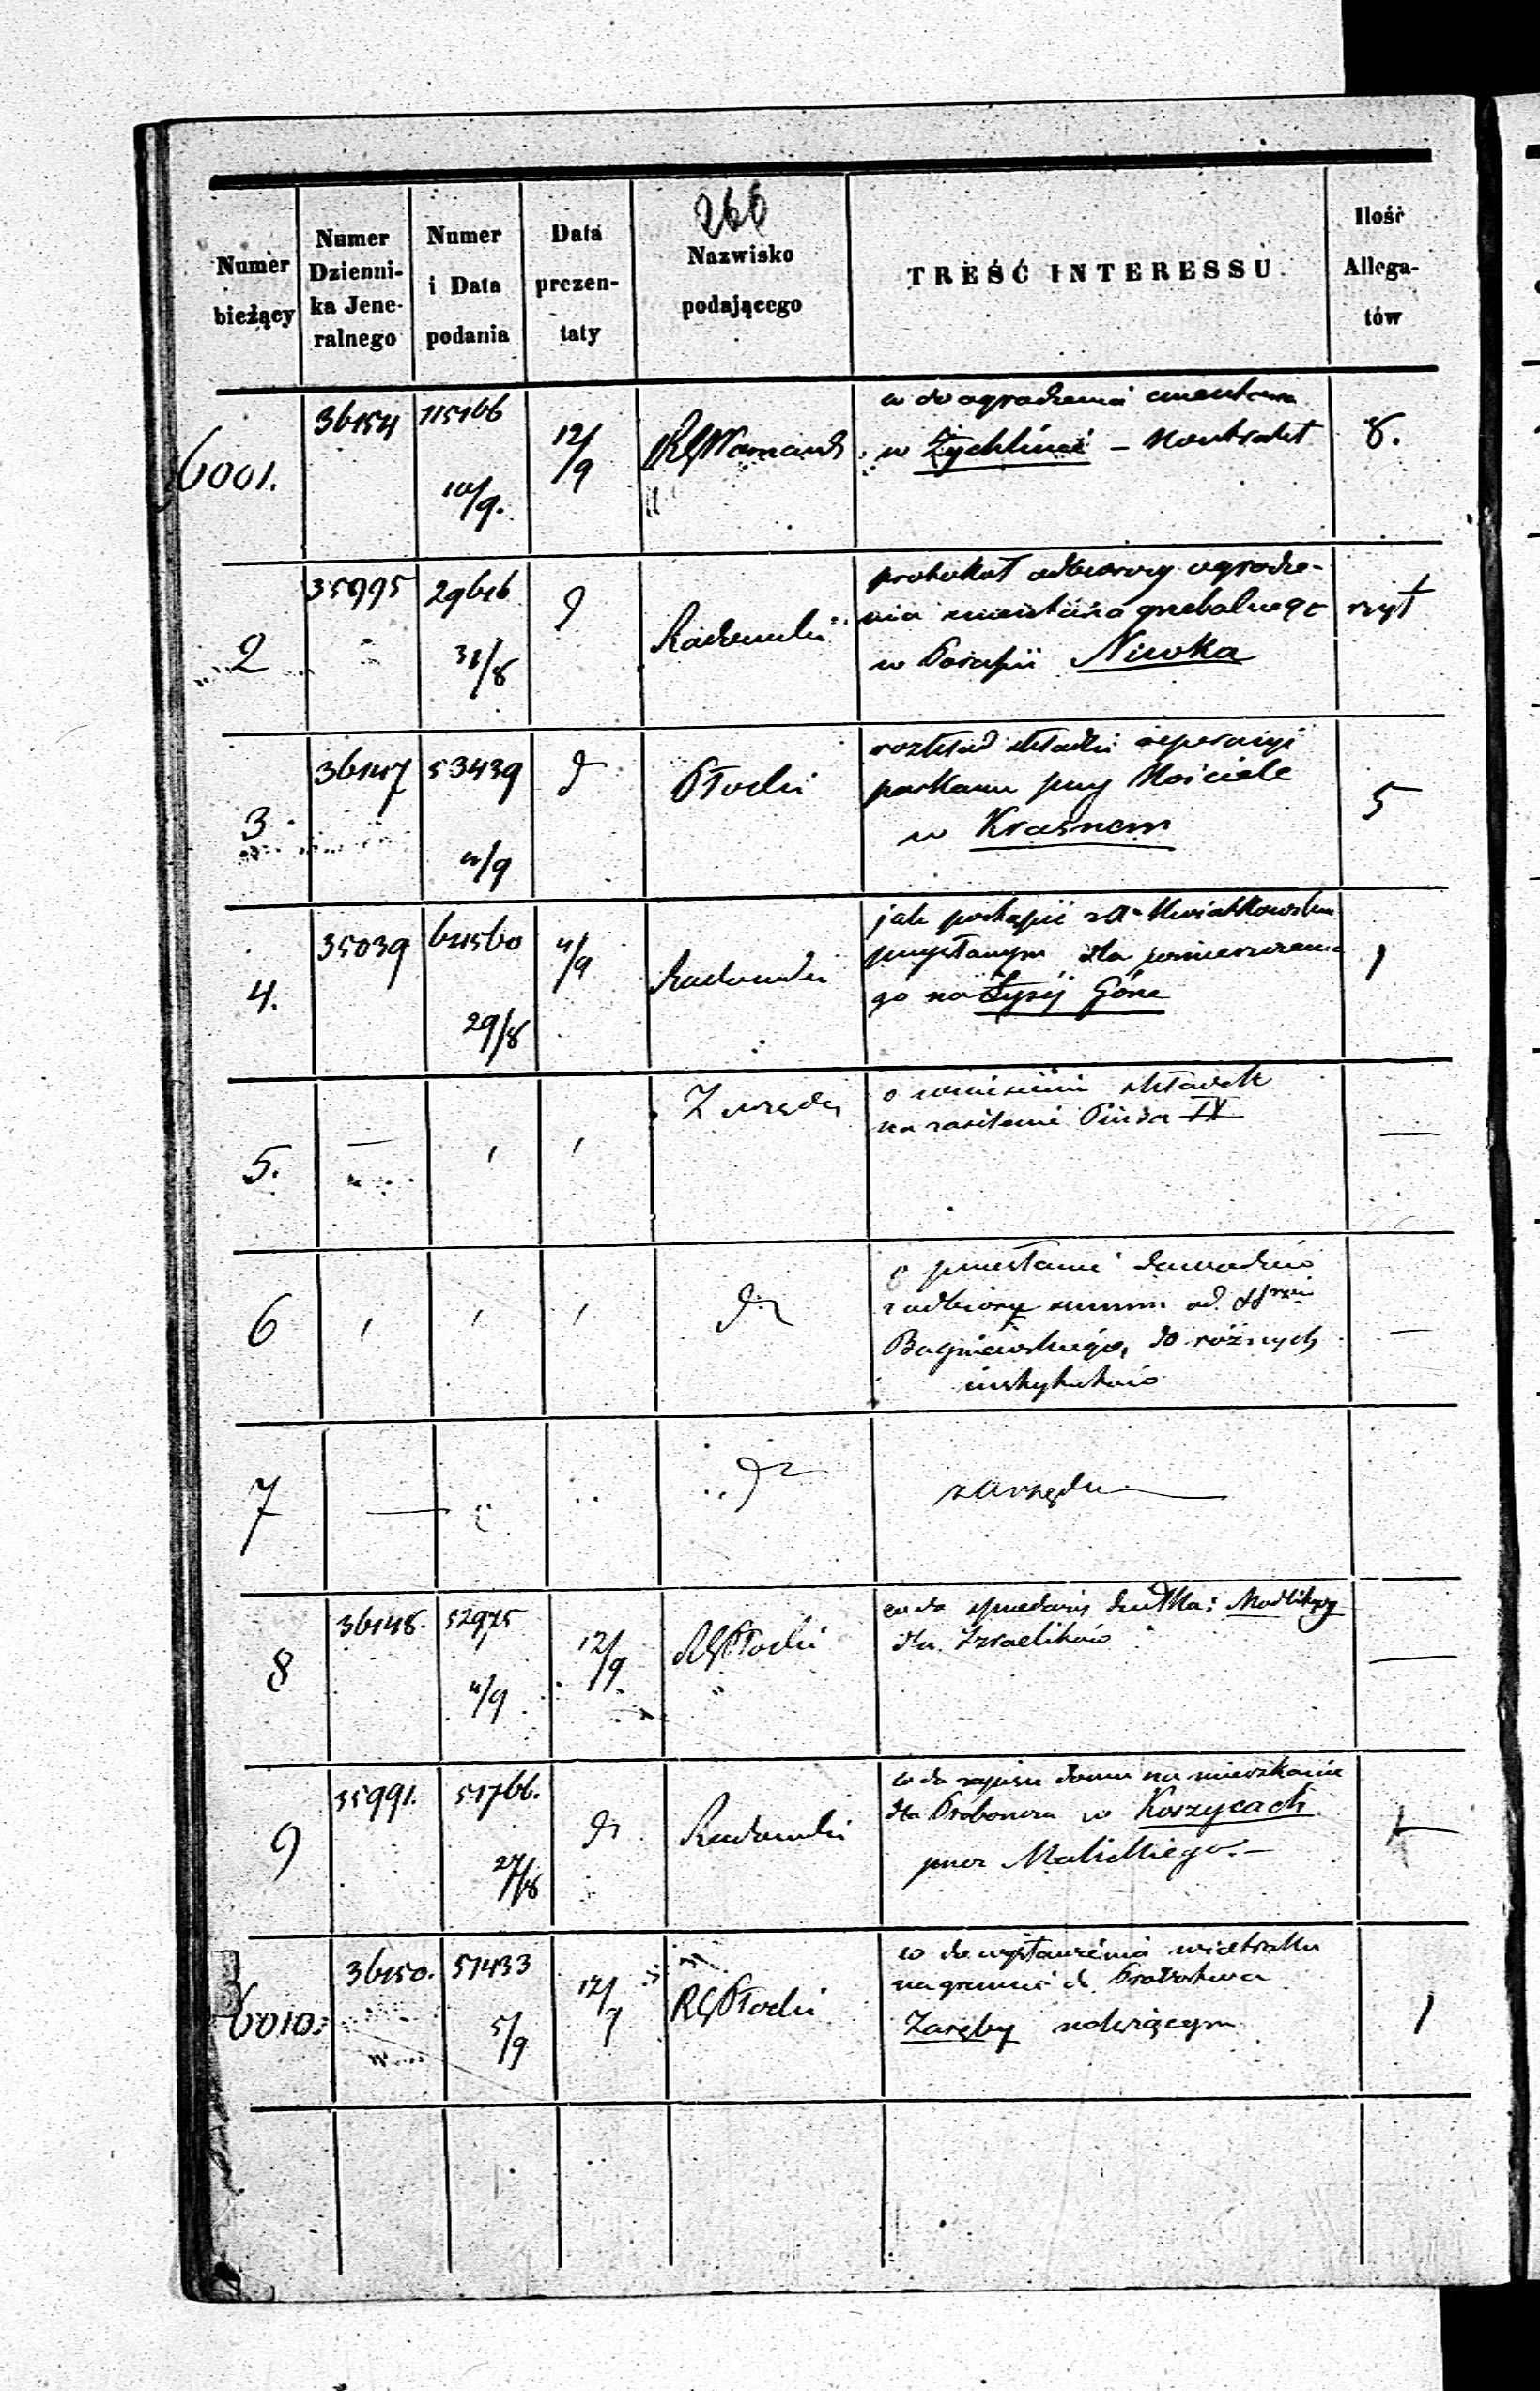 266
Numer bieżący
Numer Dziennika Jeneralnego
Numer i Data podania
Data prezentaty
Nazwisko podającego
TREŚĆ INTERESSU
Ilość Allegatów
6001.
36154
10/9.
12/9
w do ogrodzenia cmentarza
w Żychlinie – Kontrakt
8.
2
35995
31/8
d
Radomski
protokół odbiorczy ogrodze-
nia cmentarza grzebalnego
w Parafii Niwka
3
36147
53439
4/9
d
Płocki
rozkład składki reperacyi
parkanu przy Kościele
w Krasnem
5
4.
35039
29/8
4/9
Radomski
jak postąpić z Kwiatkowskim
przysłanym dla pomieszczenia
go na Łysej Górze
1
5.
—
Z urzędu
o wniesieniu składek
na zasilenie Piusa IX
—
6
do
o przesłanie dowodów
z odbioru summ od
Bagniewskiego, do różnych
instytutów
—
7
—
do
z urzędu —
8
36148.
52975
4/9
12/9
RG Płocki
co do sprzedaży dziełka: Modlitwy
dla Izraelitów
—
9
35991.
51766.
27/8
do
Radomski
co do zapisu domu na mieszkanie
dla Proboszcza w Koszycach
przez Malickiego. —
6010.
36150.
51433
5/9
12/9
RG Płocki
co do wystawienia wiatraku
na gruncie do Probostwa
Zaręby należącym
1